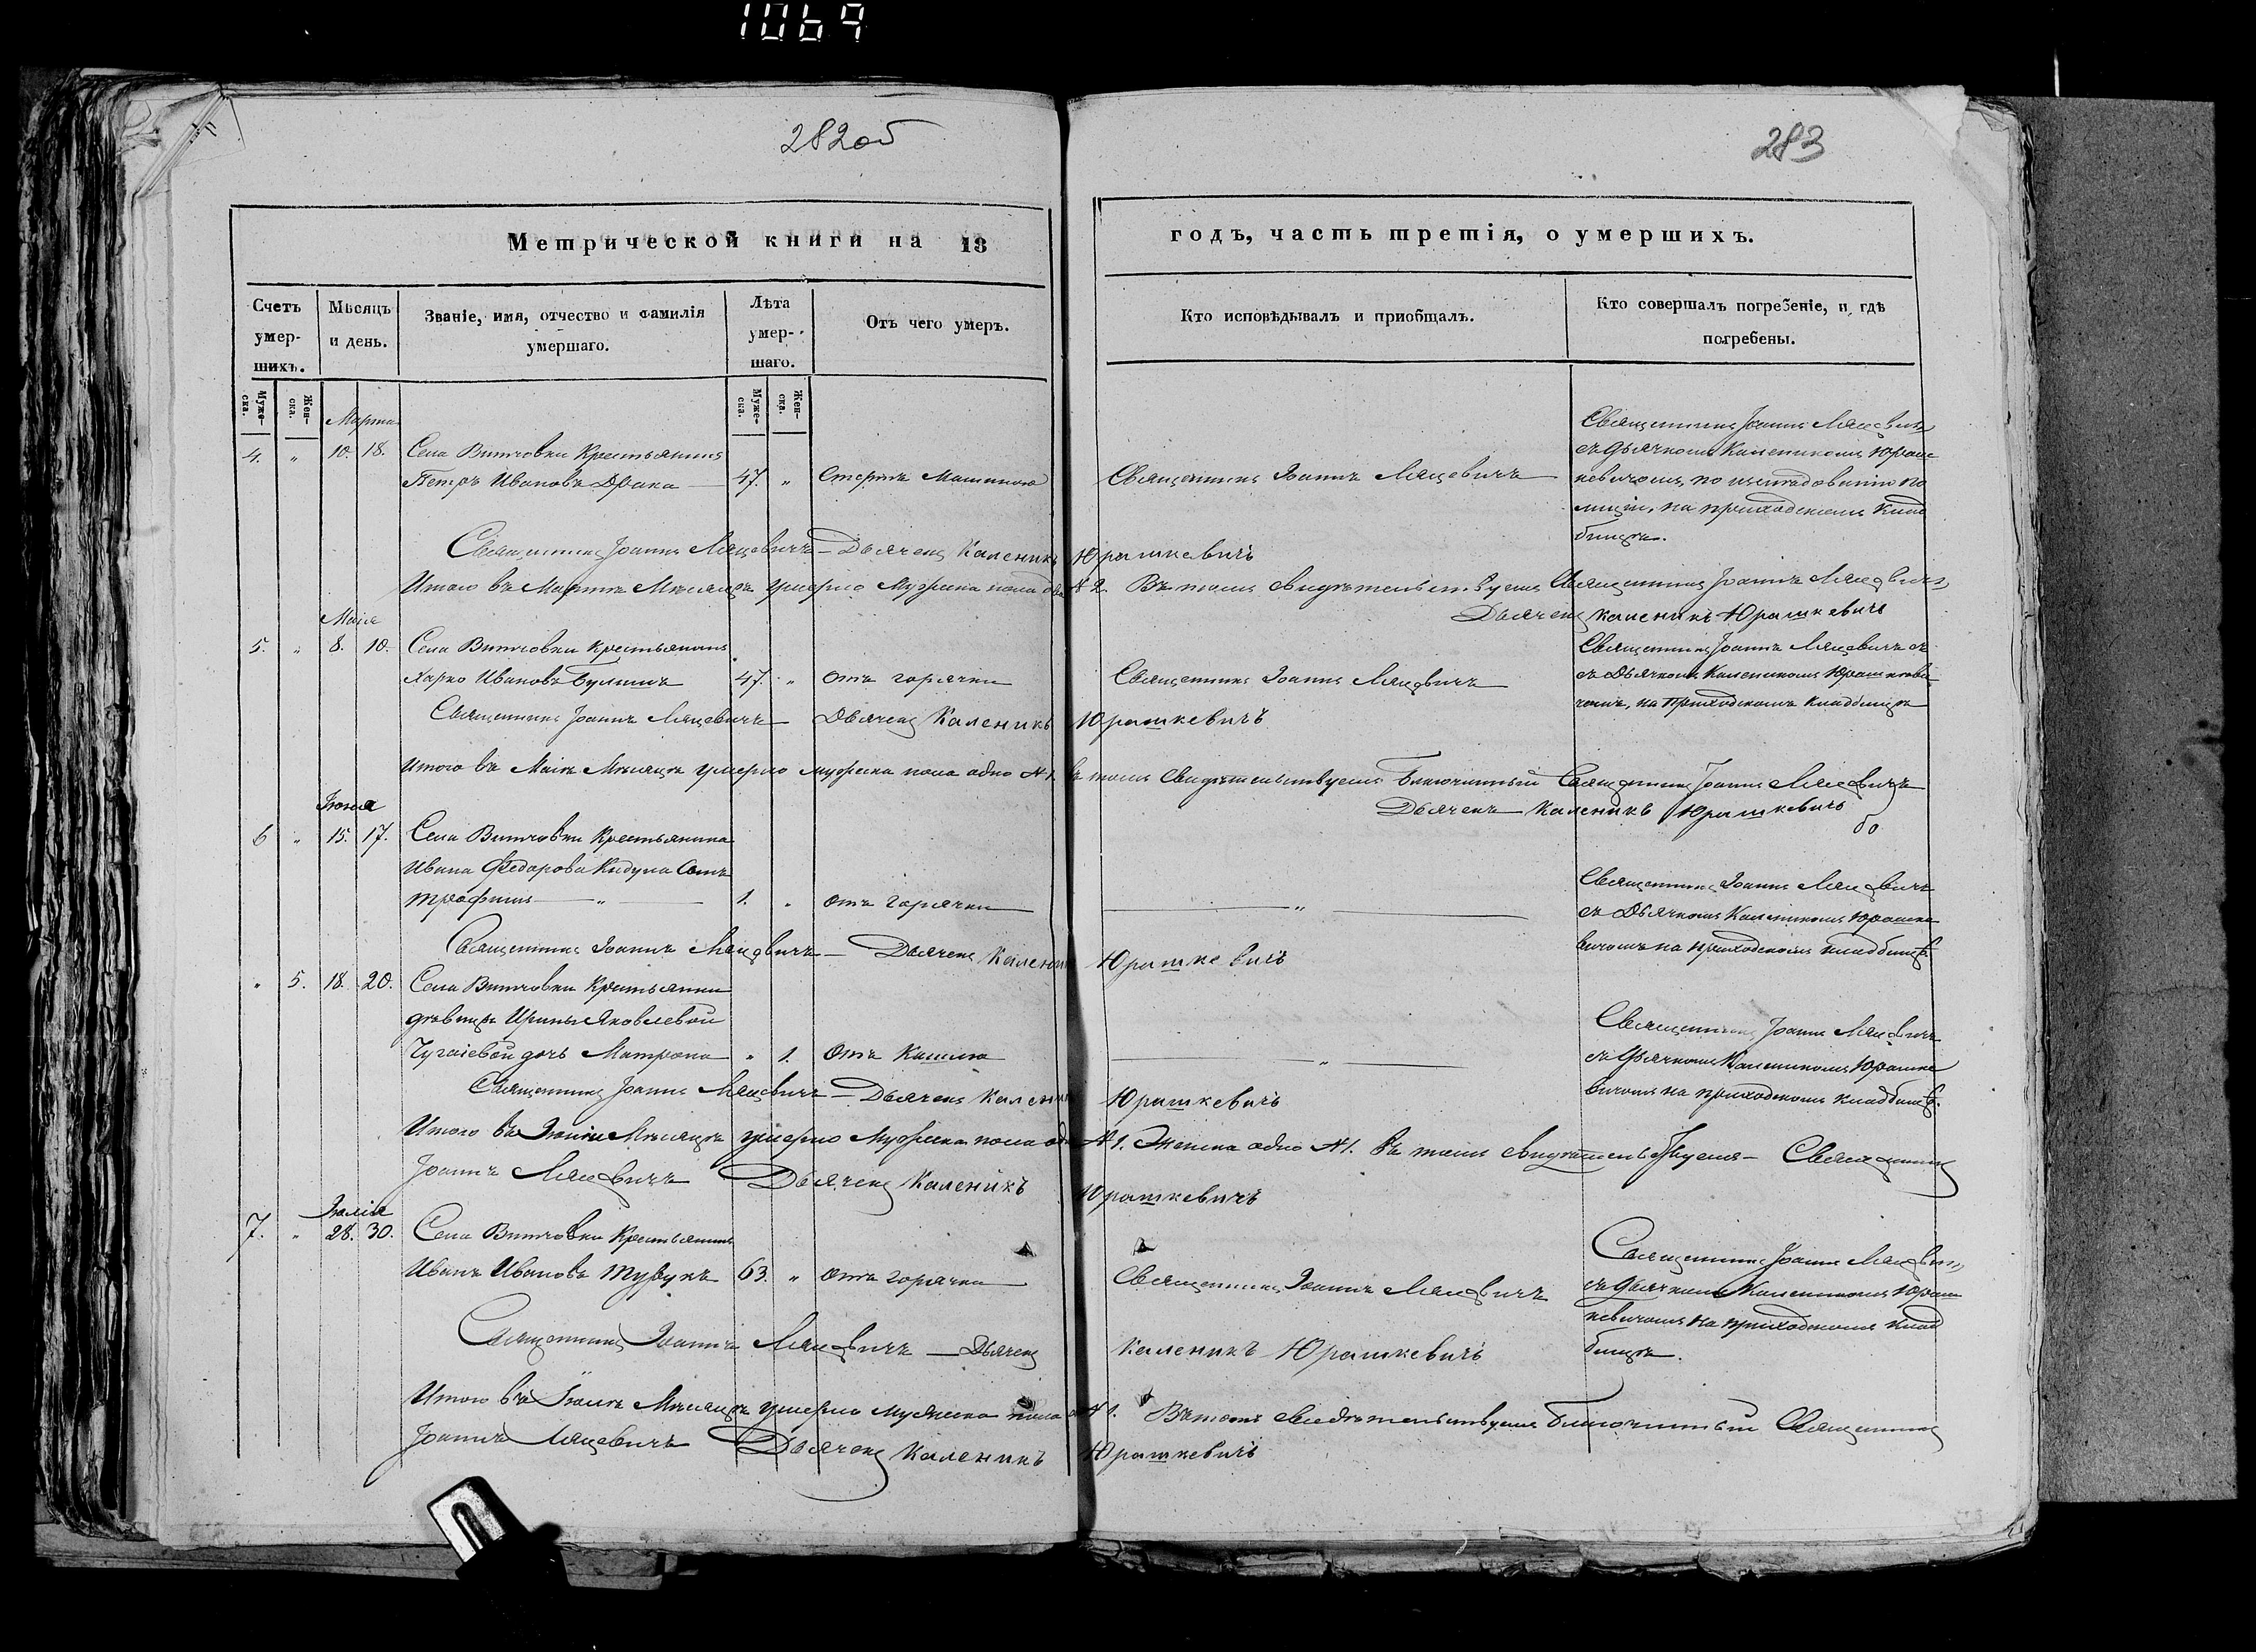 1069
282об
283
Метрической книги на 18
годъ, часть третія, о умершихъ.
Счетъ умер-шихъ.
Мѣсяцъ и день.
Званіе, имя, отчество и Фамилія умершаго.
Лѣта умер-шаго.
Отъ чего умеръ.
Кто исповѣдывалъ и приобщалъ.
Кто совершалъ погребеніе, и гдѣ погребены.
Муже-ска.
Жен-ска.
Муже-ска.
Жен-ска.
Марта
4. " 10. 18. Села Витчовки Крестьянинъ
Петръ Ивановъ Драка — 47. "
Священникъ Іоаннъ Ляцевичъ
Священникъ Іоаннъ Ляцевичъ
съ дьячкомъ Каленикомъ Юраш
кевичомъ, по
на приходскомъ клад
бищѣ.
Священникъ Іоаннъ Ляцевичъ — Дьячекъ Каленикъ Юрашкевичъ
Итого въ Мартѣ Мѣсяцѣ умерло Мужеска пола два № 2. Въ томъ свидѣтельствуемъ Священникъ Іоаннъ Ляцевичъ
Дьячекъ Каленикъ Юрашкевичъ
Маія
5. " 8. 10. Села Витчовки Крестьянинъ
Харко Ивановъ 47. " отъ горячки
Священникъ Іоаннъ Ляцевичъ
Священникъ Іоаннъ Ляцевичъ съ
съ Дьячкомъ Каленикомъ Юрашкеви
чомъ, на Приходскомъ Кладбищѣ
Священникъ Іоаннъ Ляцевичъ — Дьячекъ Каленикъ Юрашкевичъ
Итого въ Маіѣ Мѣсяцѣ умерло мужеска пола одно № 1. въ томъ Свидѣтельствуемъ Благочинный Священникъ Іоаннъ Ляцевичъ
Дьячекъ Каленикъ Юрашкевичъ
Іюня
6 " 15. 17. Села Витчовки Крестьянина
Ивана Федорова Сынъ
Трофимъ — " — 1. " отъ горячки
— " —
Священникъ Іоаннъ Ляцевичъ
съ Дьячкомъ Каленикомъ Юрашке
вичомъ на приходскомъ кладбищѣ
Священникъ Іоаннъ Ляцевичъ — Дьячекъ Каленикъ Юрашкевичъ
" 5. 18. 20. Села Витчовки Крестьянки
дѣвицы Ирины Яковлевой
дочь Матрона " 1. Отъ Кашлю
— " —
Священникъ Іоаннъ Ляцевичъ
съ Дьячкомъ Каленикомъ Юрашке
вичомъ на приходскомъ кладбищѣ.
Священникъ Іоаннъ Ляцевичъ — Дьячекъ Каленикъ Юрашкевичъ
Итого въ Іюнѣ Мѣсяцѣ умерло Мужеска пола одно № 1. Женска одно № 1. Въ томъ свидѣтельствуемъ — Священникъ
Іоаннъ Ляцевичъ Дьячекъ Каленикъ Юрашкевичъ
Іюлія
7. " 28. 30. Села Витчовки Крестьянинъ
Иванъ Ивановъ 63. " отъ горячки
Священникъ Іоаннъ Ляцевичъ
Священникъ Іоаннъ Ляцевичъ
съ Дьячкомъ Каленикомъ Юраш
кевичомъ на приходскомъ клад
бищѣ.
Священникъ Іоаннъ Ляцевичъ — Дьячекъ Каленикъ Юрашкевичъ
Итого въ Іюлѣ Мѣсяцѣ умерло мужеска пола № 1. Въ томъ свидѣтельствуемъ благочинный Священникъ
Іоаннъ Ляцевичъ Дьячекъ Каленикъ Юрашкевичъ